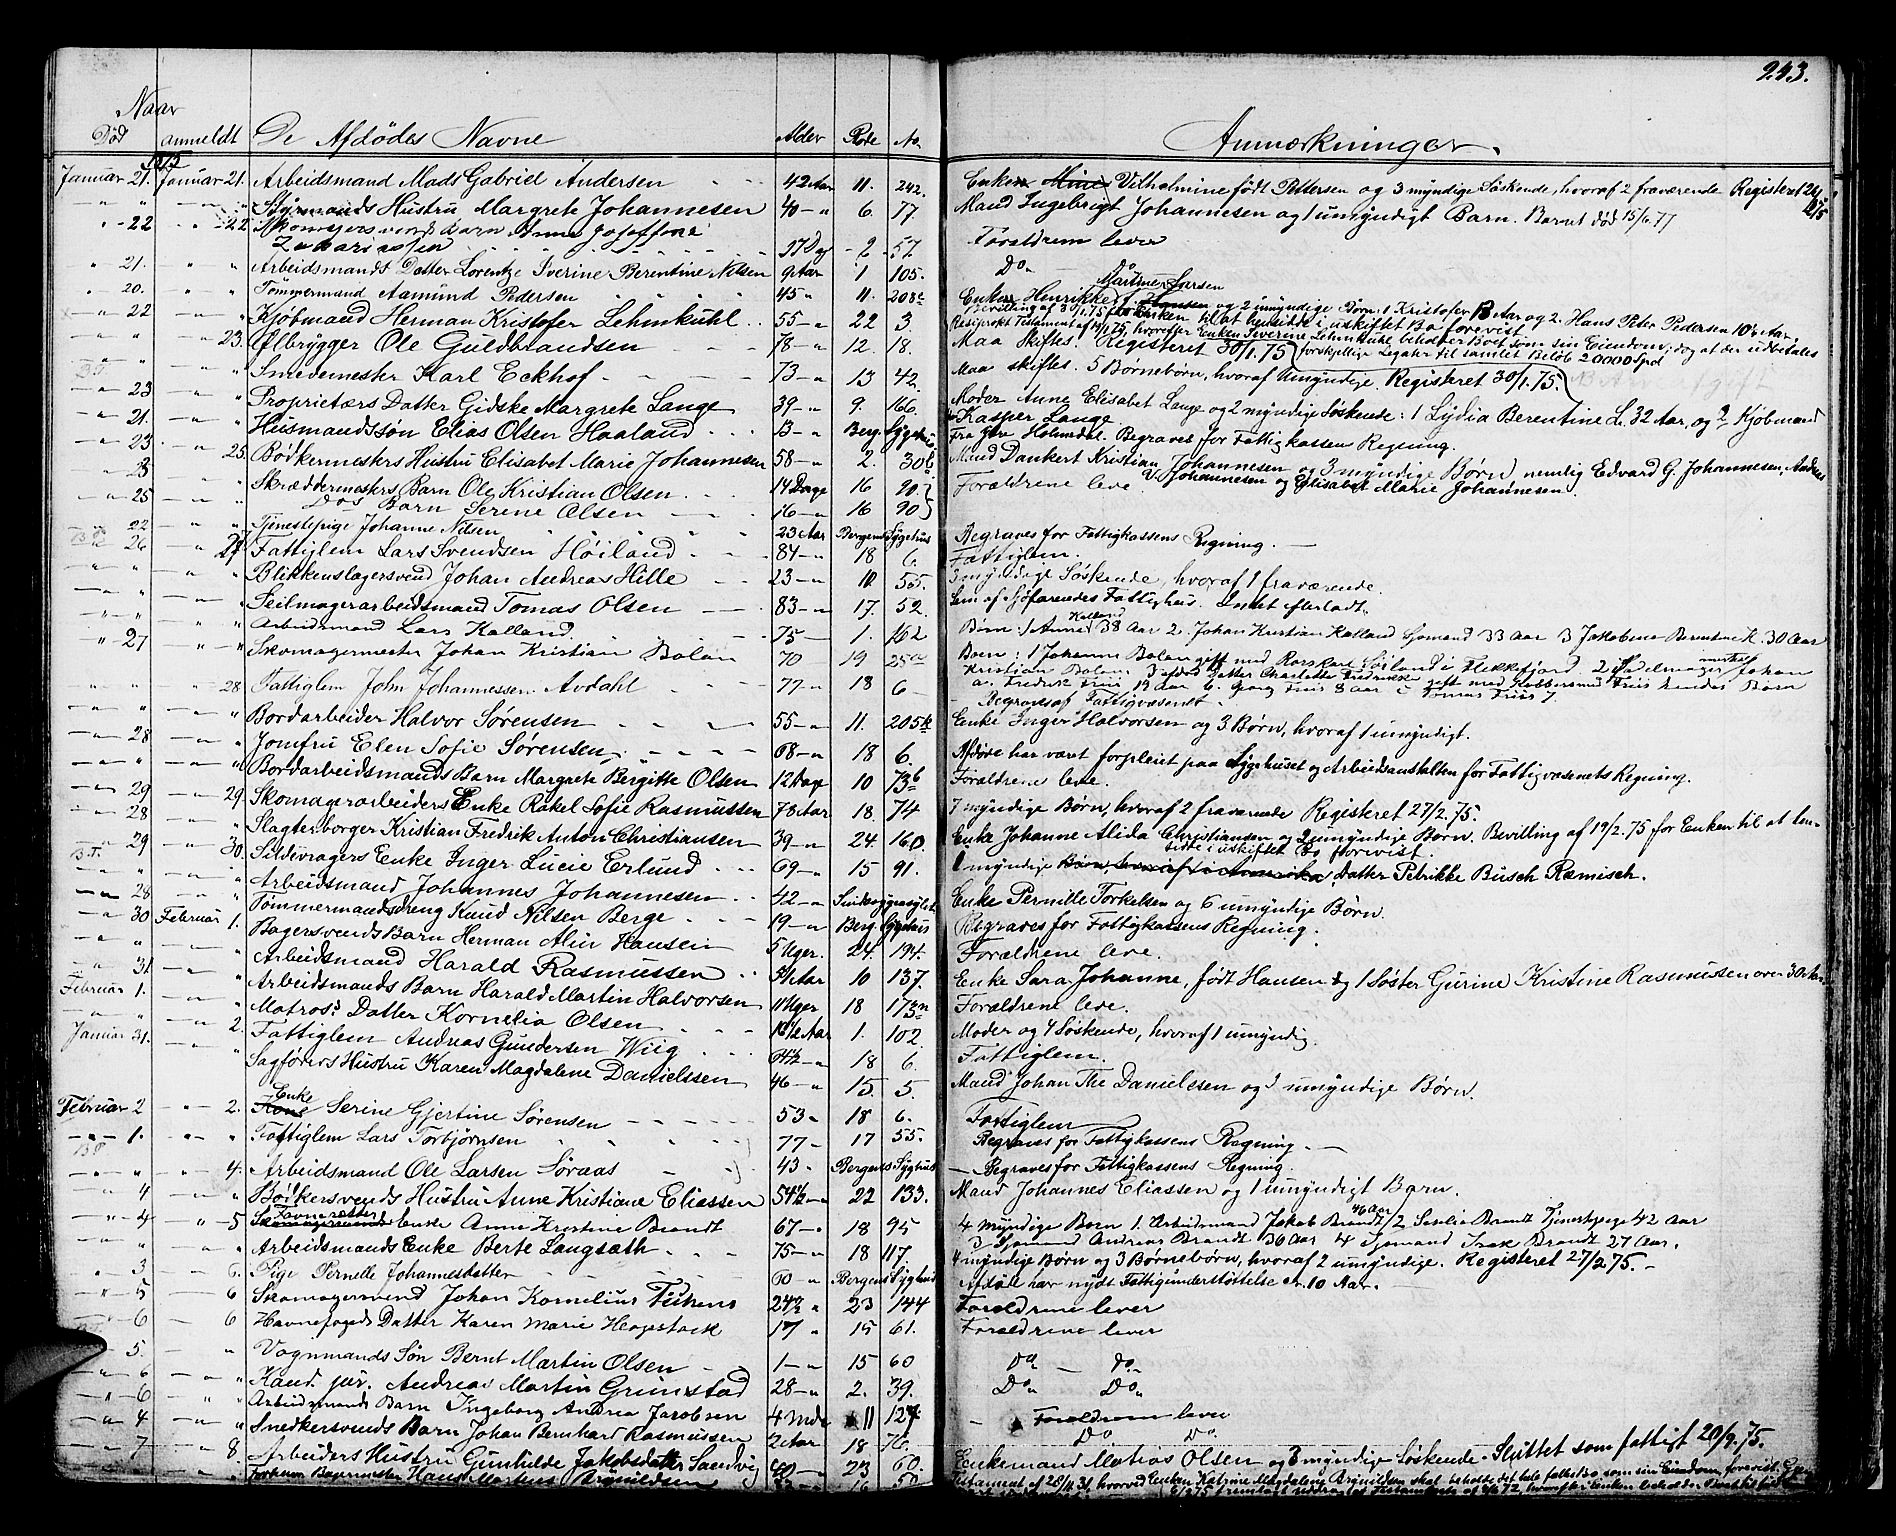 243.
Naar
Død anmeldt De Afdødes Navne Alder Rode No. Anmærkninger.
1875
Januar 21. Januar 21. Arbeidsmand Mads Gabriel Andersen 42 Aar 11. 242. Enken Vilhelmine født Pettersen og 3 myndige Søskende, hvoraf 2 fraværende Registeret
" " " Styrmands Hustru Margrete Johannesen 40 " 6. 77. Mand Ingebrigt Johannesen og 1 umyndigt Barn. Barnet død 15/6.77
" 22 " 22 Barn Anne Josefine
Zakariassen 17 Dag 2 57. Foraldrene lever
" 21. " " Arbeidsmands Datter Lorentze Sverine Berentine Nilsen 9 Aar 1 105. Do Do
" 20. " " Tømmermand Aamund Pedersen 45 " 11. 208 Enken Henrikke f. Larsen og 2 umyndige Børn: 1 Kristofer 13 Aar og 2. Hans Peter Pedersen 10½ Aar.
" 22 " " Kjøbmand Herman Kristofer Lehmkuhl 55 " 22 3. Bevilling af 30/1.75 for Enken til at hensidde i uskiftet Bo forevist
Resiprokt Testament af hvorefter Enken Severine Lehmkuhl beholder Boet som sin Eiendom; dog at der udbetales
" " " 23. Ølbrygger Ole Guldbrandsen 78 " 12. 18. Maa Skiftes. Registeret 30/1.75 forskjellige Legater til samlet Beløb 20000 Spd
" " " Smedemester Karl Eckhof 73 " 13 42. Maa skiftes. 5 Børnebørn, hvoraf Umyndige. Registeret 30/1.75.
" 23 " Proprietærs Datter Gidske Margrete Lange 39 " 9. 166. Moder Anne Elisabet Lange og 2 myndige Søskende: 1 Lydia Berentine L. 32 Aar, og 2 Kjøbmand
Kasper Lange
" 21. " " Husmandssøn Elias Olsen Haaland 13 " Berg. Sygehus Fra Holmedal. Begraves for Fattigkassen Regning.
" 23. " 25. Bødkermesters Hustru Elisabet Marie Johannesen 58 " 2. 30 Mand Dankert Kristian Johannesen og 3 myndige Børn nemlig Edvard G. Johannesen, Andreas
" 23 " " Skræddermesters Barn Ole Kristian Olsen 14 Dage 16 90 Foraldrene leve. V. Johannesen og Elisabet Marie Johannesen.
" 25 " " Dos Barn Serene Olsen 16 " 16 90
" 22 " " Tjenestepige Johanne Nilsen 23 Aar Bergens Sygehus Begraves for Fattigkassens Regning.
" 26 " 27 Fattiglem Lars Svendsen Høiland 84 " 18 6. Fattiglem.
" " " Blikkenslagersvend Johan Andreas Hille 23 " 10. 55. 3 myndige Søskende, hvoraf 1 fraværende.
" " " Seilmagerarbeidsmand Tomas Olsen 83 " 17. 52. Lem af Søfarendes Fattighus. Intet efterladt.
" " " Arbeidsmand Lars Kalland 75 1. 162 Børn: 1 Anne Kalland 38 Aar 2. Johan Kristian Kalland Sjømand 33 Aar 3 Jakobina Berentine K. 30 Aar
" 27 " " Skomagermester Johan Kristian Bolan 70 19 25 Børn: 1 Johanne Bolan gift med i Flekkefjord. 2 Sadelmager Johan
Kristian Bolan 3 afdød Datter Charlotte Fredrikke gift med Friis hendes Børn
a. Fredrik Friis 19 Aar b. Georg Friis 8 Aar c Tomas Friis 7.
" " " 28 Fattiglem John Johannessen Avdahl 77 " 18 6 Begraves af Fattigvæsenet.
" " " Bordarbeider Halvor Sørensen 55 " 11. 205 Enke Inger Halvorsen og 3 Børn, hvoraf 1 umyndigt.
" 28 " " Jomfru Elen Sofie Sørensen 68 " 18 6. Afdøde har været forpleiet paa Sygehuset og Arbeidsanstalten for Fattigvæsenets Regning.
" " " Bordarbeidsmands Barn Margrete Bergitte Olsen 12 Dage 10 73b Foraldrene leve.
" 29 " 29. Skomagerarbeiders Enke Rakel Sofie Rasmussen 78 Aar 18. 74 7 myndige Børn, hvoraf 2 fraværende Registeret 27/2.75.
" 28 " " Slagterborger Kristian Fredrik Anton Christiansen 39 " 24. 160. Enke Johanne Alida Christiansen og 2 umyndige Børn. Bevilling af 19/2.75 for Enken til at hen-
sidde i uskiftet Bo forevist.
" 29 " 30. Sildevragers Enke Inger Lucie Erlund 69 " 15 91. myndige Børn, hvoraf 1 i Amerika, Datter Petrikke Busch Ræmisch.
" " " Arbeidsmand Johannes Johannesen 42 " Sindssygeasylet Enke Pernille Torkelsen og 6 umyndige Børn.
" 28 " " Tømmermandsdreng Knud Nilsen Berge 19 " Berg. Sygehus Begraves for Fattigkassens Regning.
" 30 Februar 1. Bagersvends Barn Herman Alin Hansen 5 Uger. 24. 194. Foraldrene leve.
" " " Arbeidsmand Harald Rasmussen 54 Aar 10 137. Enke Sara Johanne, født Hansen og 1 Søster Gurine Kristine Rasmussen over 30 Aar
" 31. " " Arbeidsmands Barn Harald Martin Halvorsen 11 Uger 18 173 Foraldrene leve.
Februar 1. " " Matros's Datter Kornelia Olsen 16½ Aar 1. 102. Moder og 4 Søskende, hvoraf 1 umyndig.
" " " 2. Fattiglem Andreas Gundersen Wiig 18 6. Fattiglem.
Januar 31. " " Sagførers Hustru Karen Magdalene Danielssen 46 " 15. 5. Mand Johan The Danielssen og umyndige Børn.
Enke
Februar 2 " 2. Kone Serine Gjertine Sørensen 53 " 18 6. Fattiglem
" 1. " " Fattiglem Lars Torbjørnsen 77 " 17 55. Begraves for Fattigkassens Regning.
" " " 4. Arbeidsmand Ole Larsen Søraas 43 " Bergens Sygehus Begraves for Fattigkassens Regning.
" 4 " " Bødkersvends Hustru Anne Kristiane Eliassen 54½ " 22 133. Mand Johannes Eliassen og 1 umyndigt Barn.
" 4 " 5 Enke Anne Kristine Brandt 67 " 18 95 4 myndige Børn 1. Arbeidsmand Jakob Brandt 46 Aar 2 Brandt Tjenestepige 42 Aar
3 Sjømand Andreas Brandt 36 Aar 4 Sjømand Isak Brandt 27 Aar.
" " " Arbeidsmands Enke Berte Langsæth 75 " 18 117. 4 myndige Børn og 3 Børnebørn, hvoraf 2 umyndige. Registeret 27/2.75.
" 3 " 6. Pige Pernelle Johannesdatter 60 " Bergens Sygehus Afdøde har nydt Fattigunderstøttelse i 10 Aar.
" 5 " 6 Skomagersvend Johan Kornelius 24 " 23 144 Foraldrene lever
" 6 " 6 Havnefogeds Datter Karen Marie Hagestock 17 " 15 61. Foraldrene lever
" 5. " " Vognmands Søn Bernt Martin Olsen 1 " 15 60 Do Do
" 6 " " Kand. jur. Andreas Martin Grimstad 28 " 2. 39. Do Do
" 6 " " Arbeidsmands Barn Ingeborg Andrea Jacobsen 4 Mdr 11 127. Foraldrene lever
" 4 " " Snedkersvends Barn Johan Bernhard Rasmussen 2 Aar 18 76. Do Do
" 7 " 8. Arbeiders Hustru Gunhilde Jakobsdatter Sandvig 40 " 23 60. Enkemand Matias Olsen og 3 myndige Søskende. Sluttet som fattigt 20/9.75.
Hans Martinus 50